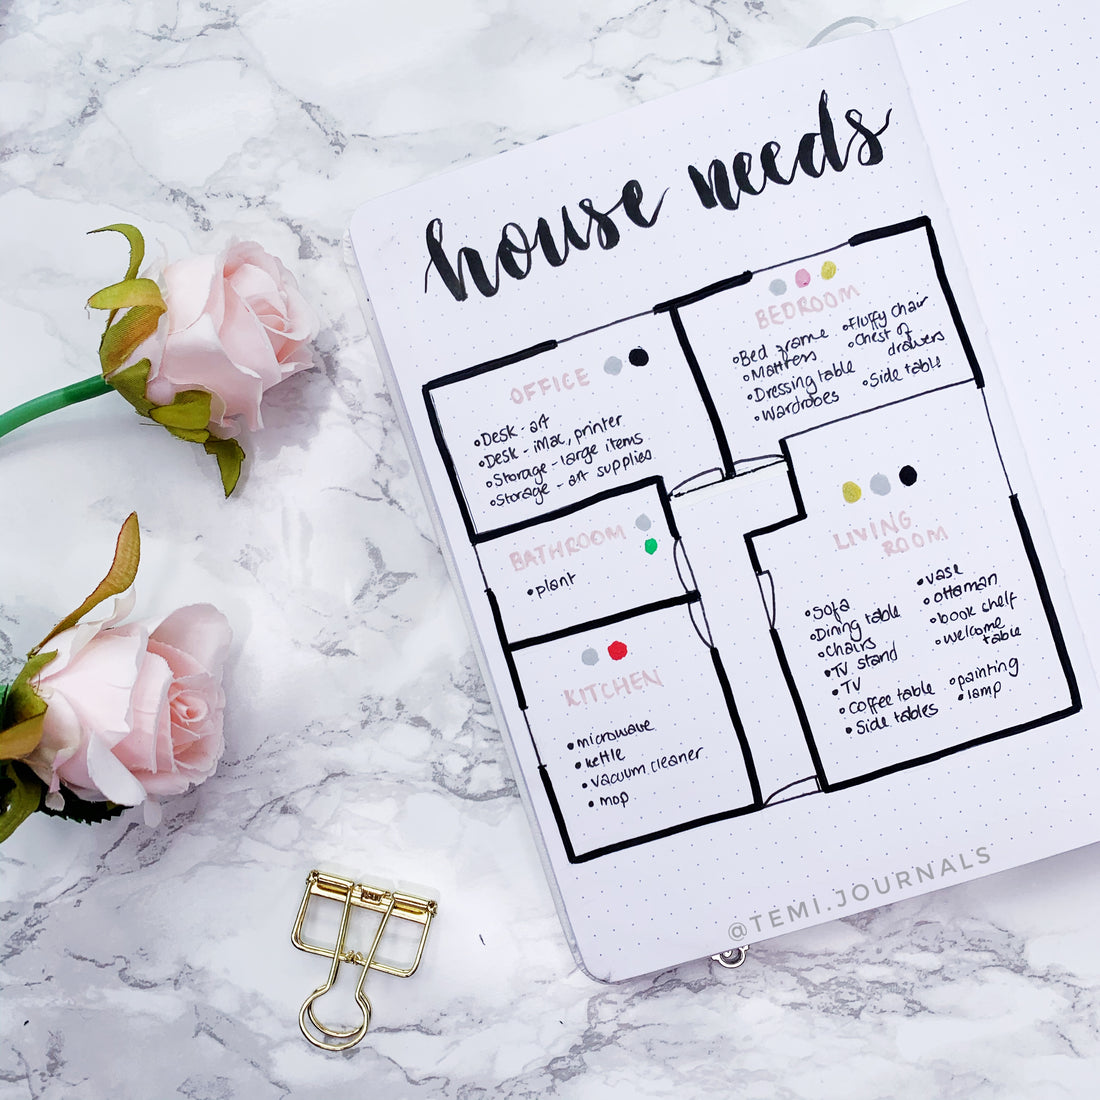 house needs
OFFICE
Desk - art
Desk - iMac, printer
Storage - large items
Storage - art supplies
BEDROOM
Bed frame
Mattress
Dressing table
Wardrobes
Fluffy chair
Chest of
drawers
Side table
BATHROOM
plant
KITCHEN
microwave
kettle
vacuum cleaner
mop
LIVING
ROOM
Sofa
Dining table
chairs
TV stand
TV
Coffee table
Side tables
vase
ottoman
book shelf
welcome
table
painting
lamp
@TEMI.JOURNALS